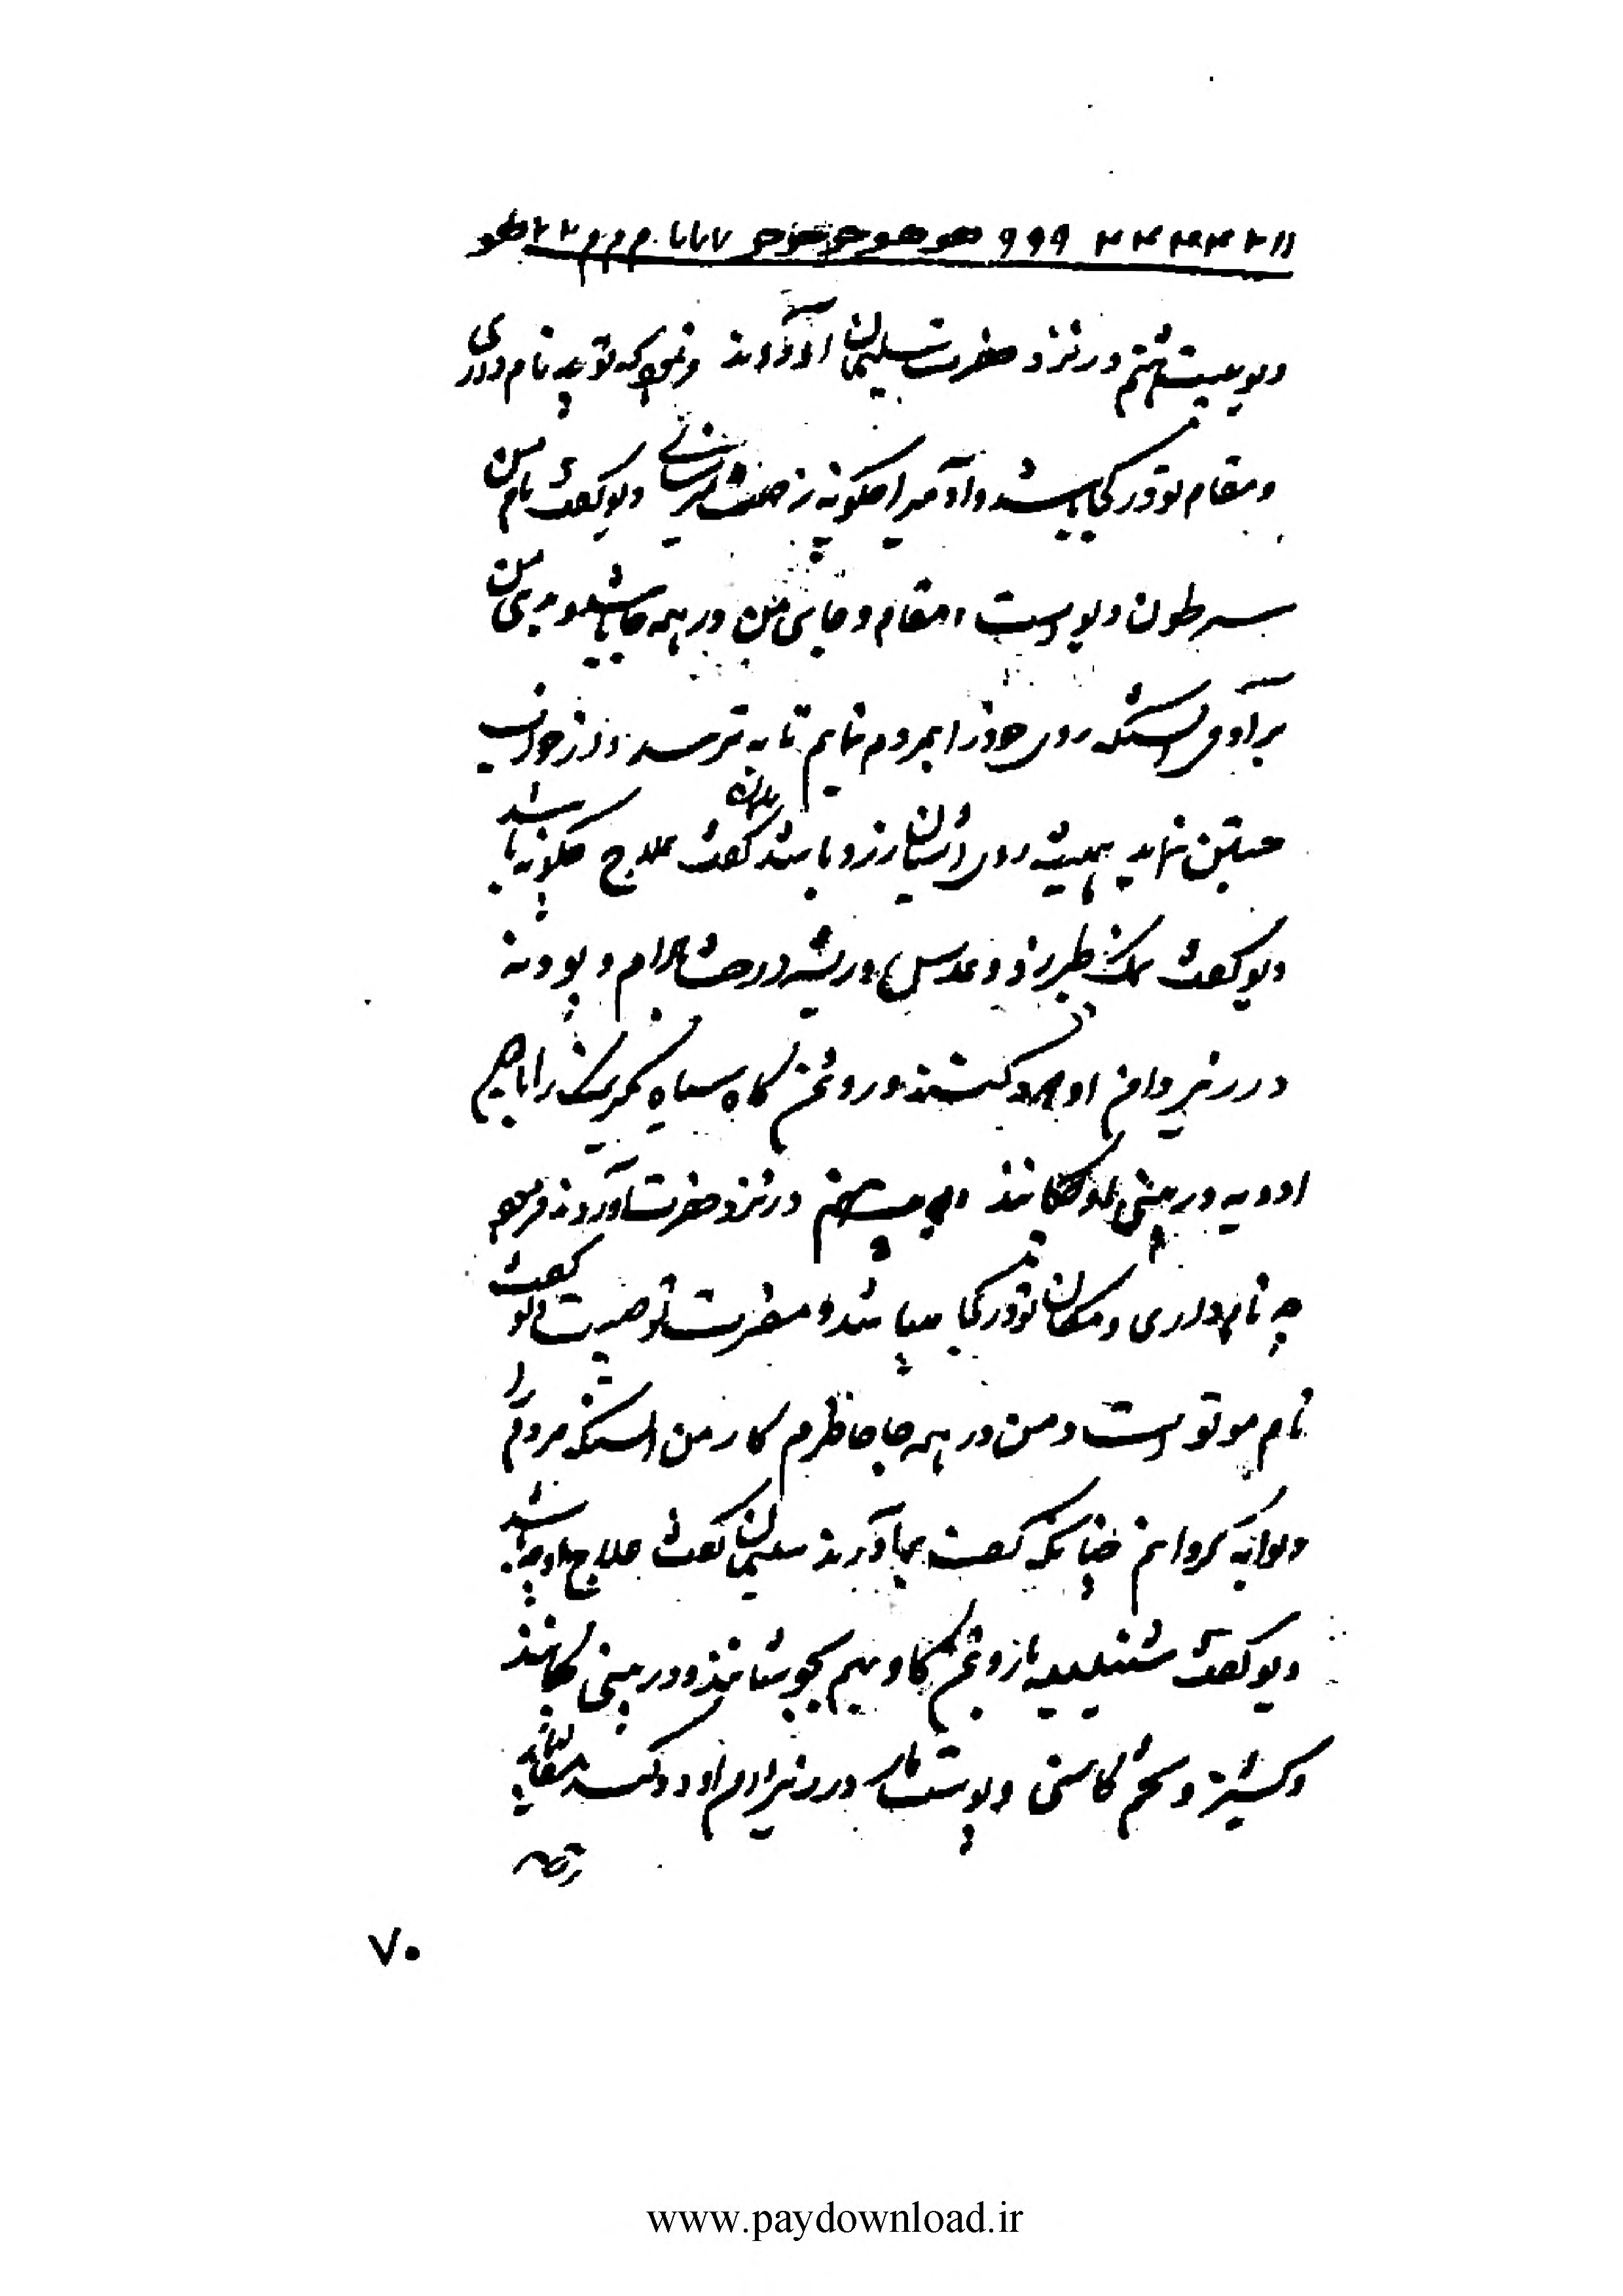 دیو بیست هشتم در نزد حضرت سلیمان آوردند فرمود که تو چه نام داری
و مقام تو در کجا باشد و آدمیرا چگونه زحمت میرسانی دیو گفت نام من
سرطون دیو است و مقام و جای من در همه جا باشد و بدی من
بر آدمی اینستکه روی خود را بمردم نمایم تا به ترسد و از خواب
جستن نماید همیشه روی ایشان زرد باشد گفت علاج چگونه باشد
دیو گفت نمک طبرزد و عدس و ریشه درخت بادام و پودنه
در زیر دامن او دود کنند و روغن گاو سیاه یکرنگ را با هم
ادویه در بینی او چکانند دیو بیست نهم در نزد حضرت آوردند فرمود
چه نام داری و مکان تو در کجا میباشد و مضرت تو چیست دیو گفت
نام موتو است و من در همه جا حاظرم کار من اینستکه مردم را
دیوانه گردانم چنانکه گفت بجا آورند سلیمان گفت علاج او چه باشد
دیو گفت شنبلیله با روغن گاو بهم بجوشانند و در بینی چکانند
و گشنیز و تخم کاسنی و پوست مار در زیر او دود کنند
۷۰
www.paydownload.ir